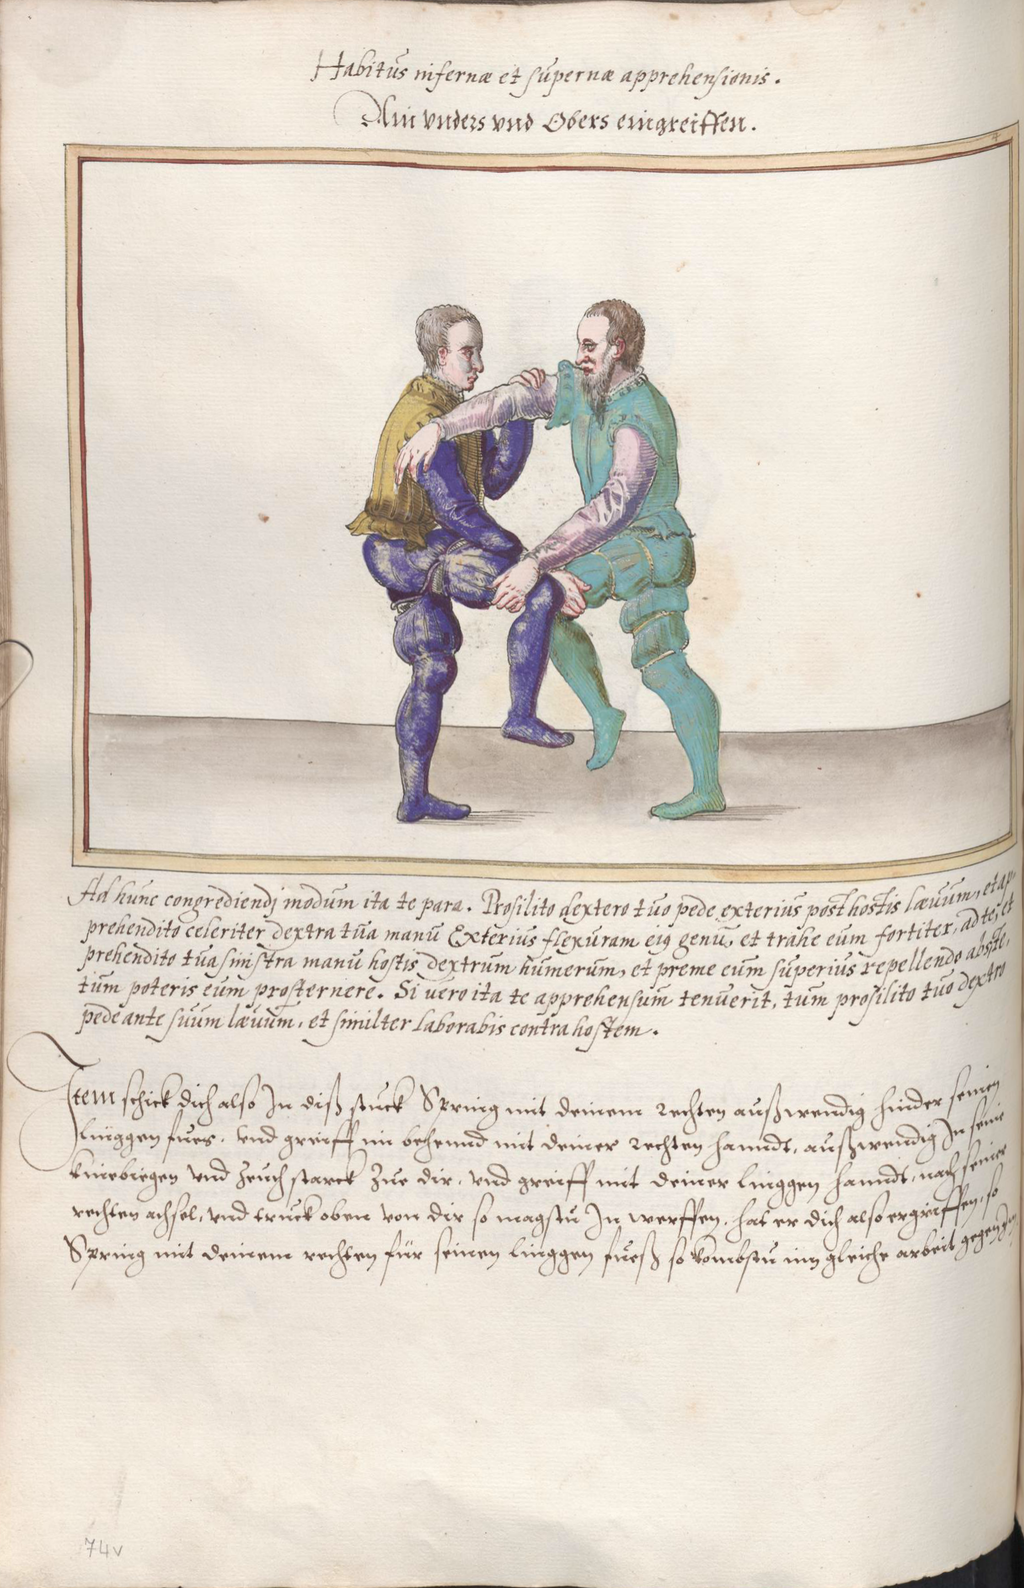 Habitus infernæ et supernæ apprehensionis.
Ain vnders vnd Obers eingreiffen.
Ad hunc congrediendj modum ita te para. Prosilito dextero tuo pede exterius post hostis læuum, et ap-
prehendito celeriter dextra tua manu Exterius flexuram eiꝯ genu, et trahe eum fortiter, ad te, et
prehendito tua sinistra manu hostis dextrum humerum, et preme eum superius repellendo abs te,
tum poteris eum prosternere. Si uero ita te apprehensum tenuerit, tum prosilito tuo dextro
pede ante suum læuum, et similter laborabis contra hostem.
Item schick dich also In diß stuck Spring mit deinem rechten außwendig hinder seinen
linggen fues, vnd greiff im behennd mit deiner rechten hanndt, außwendig In seine
kniebiegen vnd zeuch starck zue dir, vnd greiff mit deiner linggen hanndt, nach seiner
rechten achsel, vnd truck oben von dir so magstu In werffen, hat er dich also ergriffen, so
Spring mit deinem rechten für seinen linggen fueß so kombstu inn gleiche arbeit gegen Im
74v